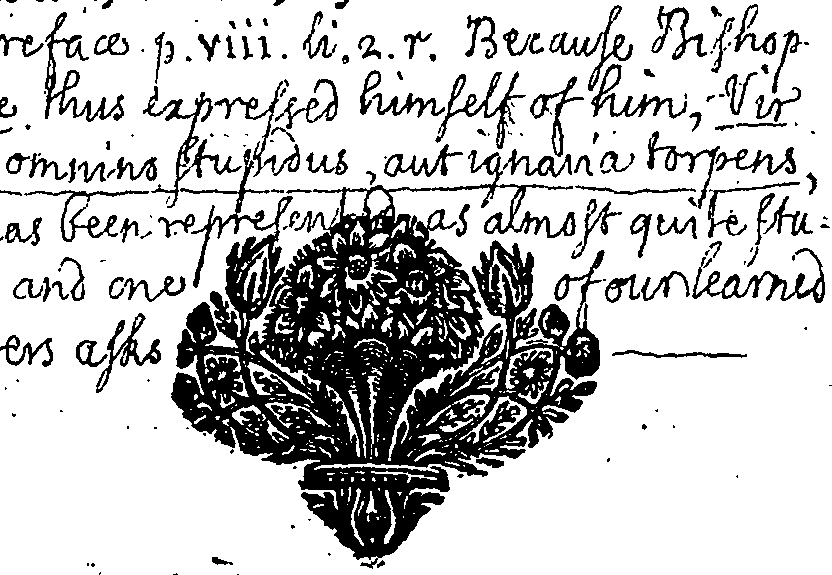 reface p.viii. li.2.r. Becauſe Biſhop
e thus expreſſed himſelf of him, Vir
omnino ſtupidus, aut ignavia torpens,
as been repreſented as almoſt quite ſtu=
and one of our learned
ers aſks